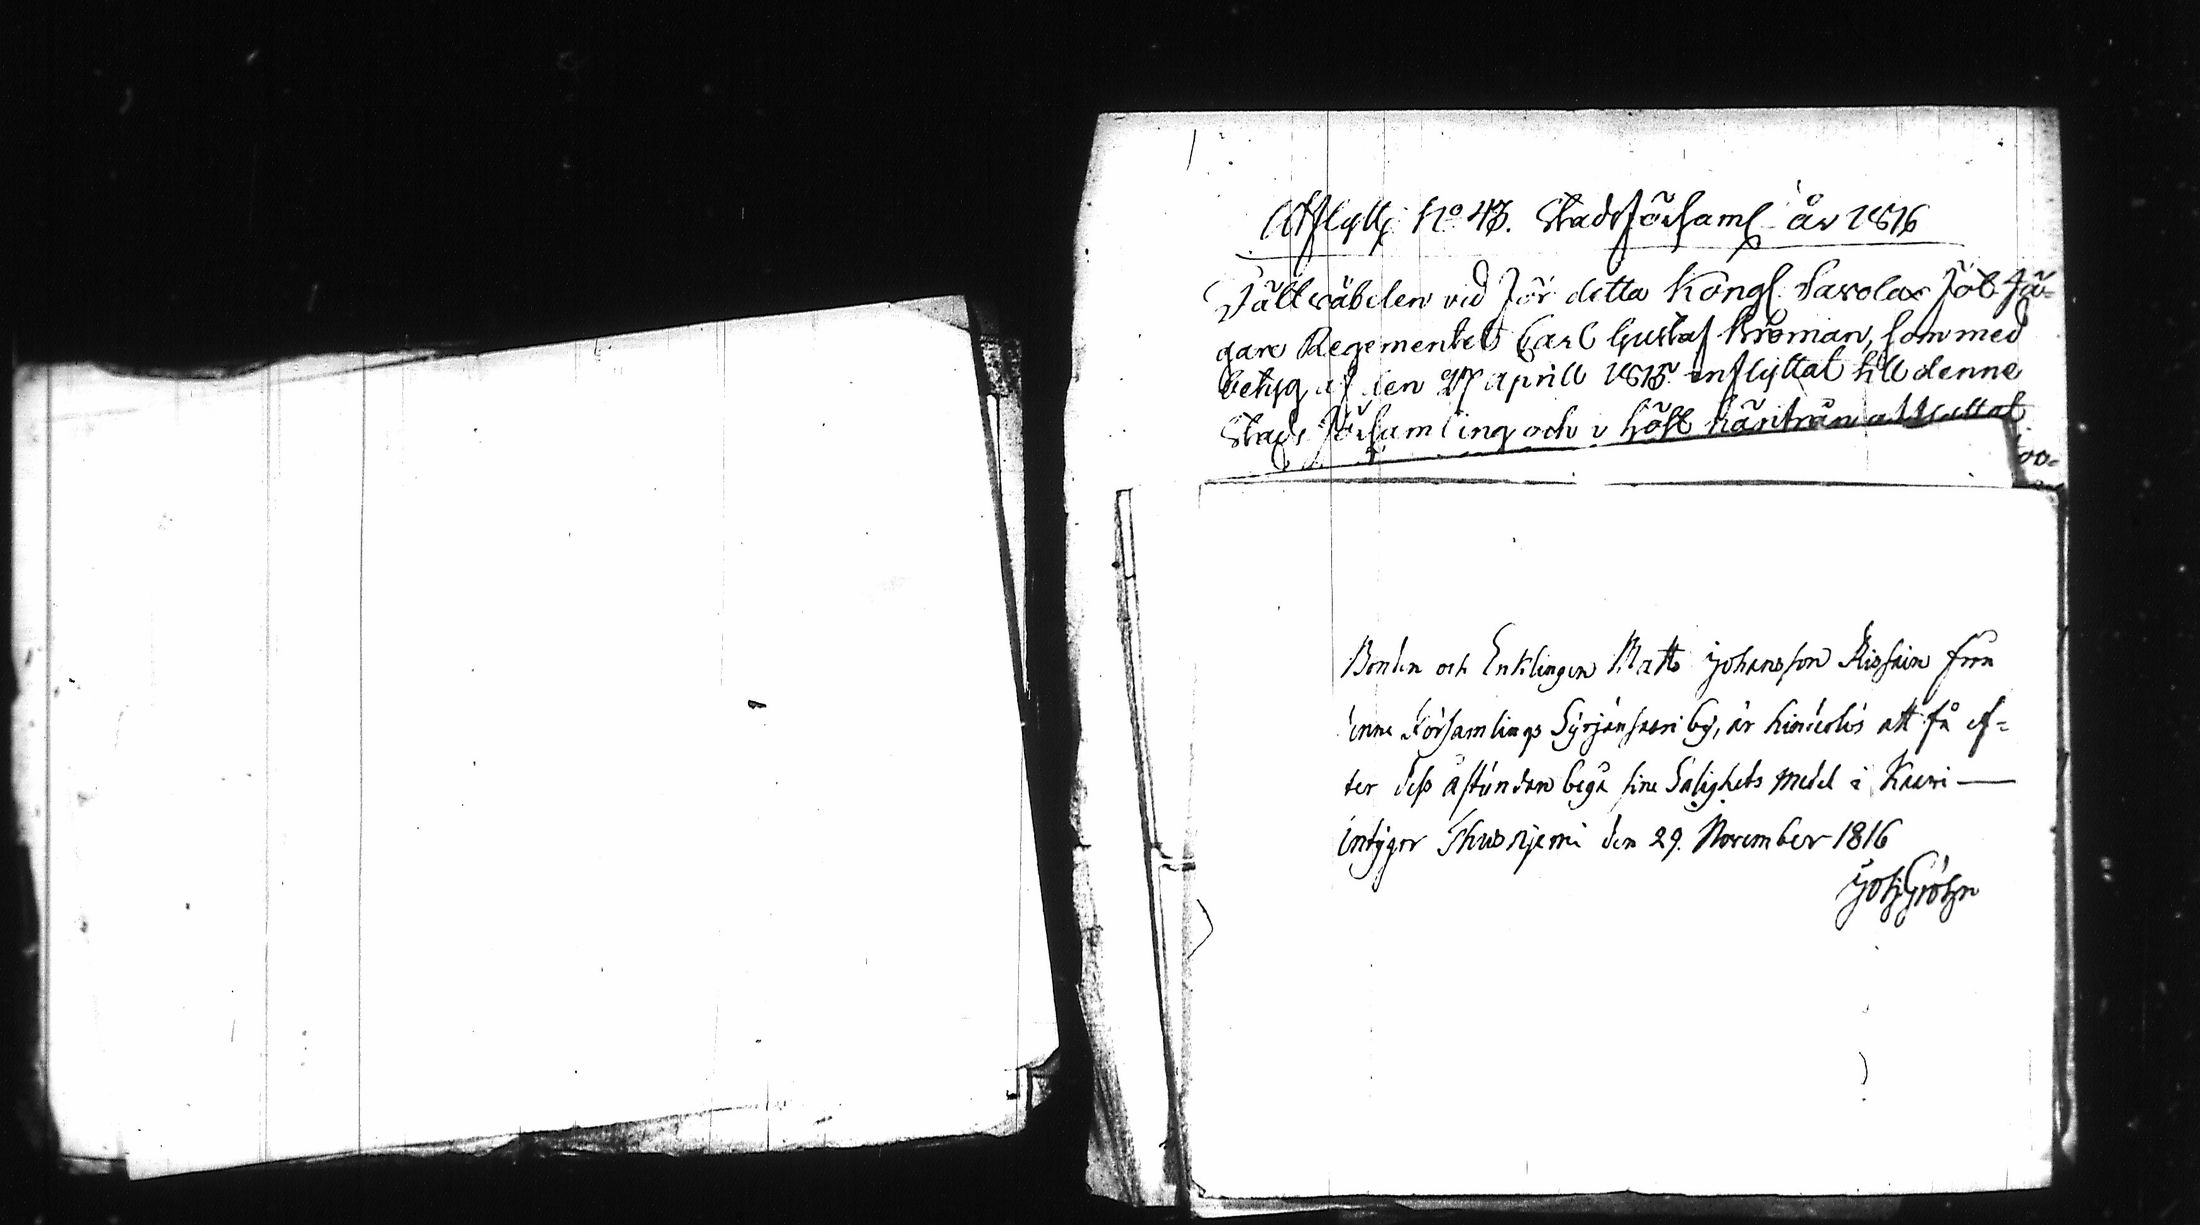 Utflyttj No 43. Stads församl år 1816
Fältwäbelen vid för detta Kongl. Savolax fot Jä-
gare Regementet Carl Gustaf Kroman, som med
betyg af den 27 Aprill 1815 inflyttat till denne
Stads församling och i höst härifrån afflyttat
Bonden och Enklingen Matts Johansson från
denne Församlings Syrjänsaari by, är hinderlös att få ef-
ter dess åstundan begå sine Salighets medel i Kaavi —
intygar Thusnjemi den 29. November 1816
Joh Gröhn